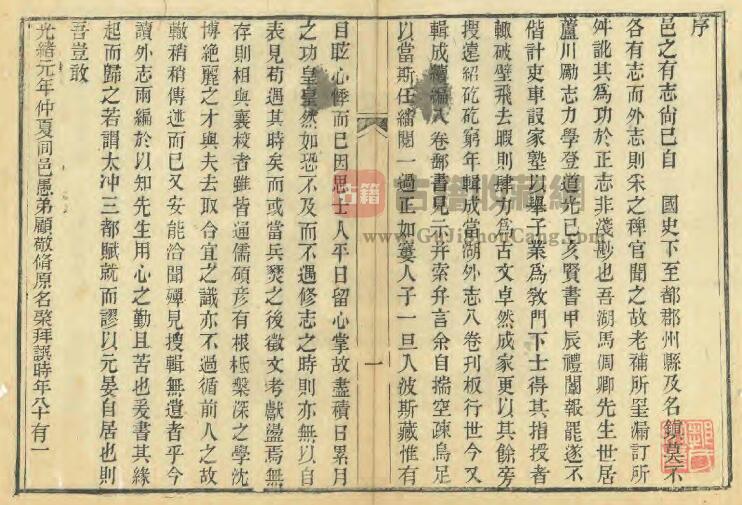 序
邑之有志尙已自 國史下至都郡州縣及名鎭莫不
各有志而外志則采之稗官聞之故老補所罣漏訂所
舛訛其爲功於正志非淺尠也吾湖馬侶卿先生世居
蘆川勵志力學登道光己亥賢書甲辰禮闈報罷遂不
偕計吏車設家塾以舉子業爲敎門下士得其指授者
輒破壁飛去暇則肆力爲古文卓然成家更以其餘旁
搜遠紹矻矻窮年輯成當湖外志八卷刋板行世今又
輯成續編八卷郵書見示并索弁言余自揣空疎烏足
以當斯任繙閱一過正如窶人子一旦入波斯藏惟有
目眩心悸而已因思士人平日留心掌故盡積日累月
之功皇皇然如恐不及而不遇修志之時則亦無以自
表見苟遇其時矣而或當兵燹之後徵文考獻盪焉無
存則相與襄校者雖皆通儒碩彦有根柢槃深之學沈
博絶麗之才與夫去取合宜之識亦不過循前人之故
轍稍稍傳述而已又安能洽聞殫見搜輯無遺者乎今
讀外志兩編於以知先生用心之勤且苦也爰書其緣
起而歸之若謂太冲三都賦就而謬以元晏自居也則
吾豈敢
光緖元年仲夏同邑愚弟顧敬脩原名榮拜譔時年八十有一
一
古籍
古籍收藏網
www.GuJiShouCang.com